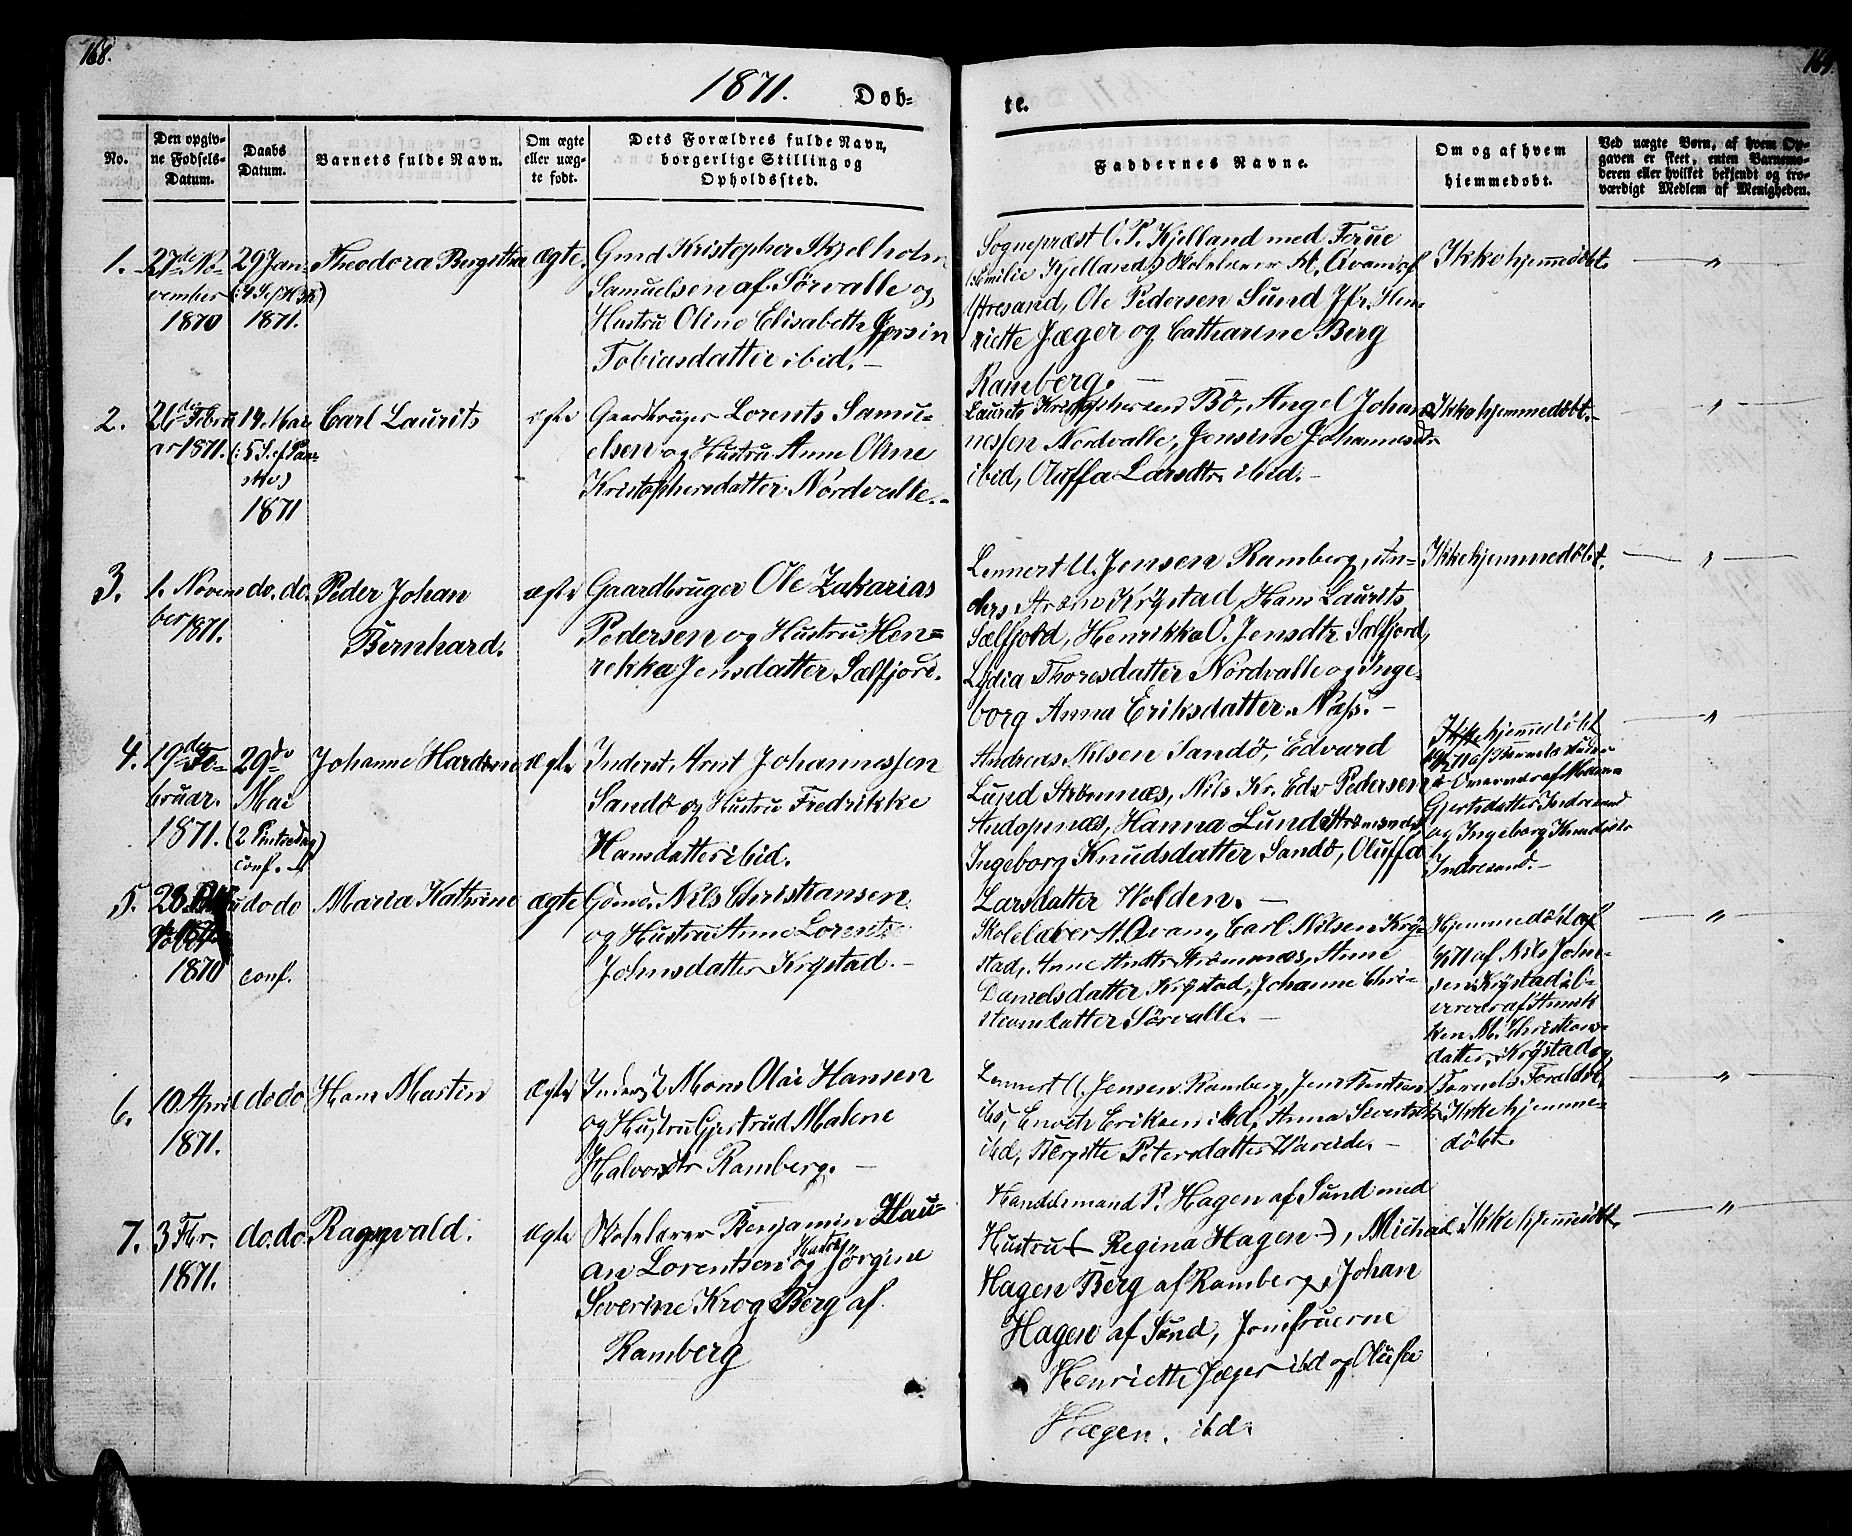 168.
169.
1871.
Døb-
te.
No.
Den opgiv-
ne Fødsels-
Datum.
Daabs
Datum.
Barnets fulde Navn.
Om ægte
eller uæg-
te født.
Dets Forældres fulde Navn,
borgerlige Stilling og
Opholdssted.
Faddernes Navne.
Om og af hvem
hjemmedøbt.
Ved uægte Børn, af hvem Op-
gaven er skeet, enten Barnemo-
deren eller hvilket bekjendt og tro-
værdigt Medlem af Menigheden.
1.
27de No-
vember
1870
29 Jan-
1871.
Theodora Bergitha
ægte.
Gmd Kristopher Skjelholm
Samuelsen af Sørvalle og
Hustru Oline Elisabeth
Tobiasdatter ibid. —
Sognepræst O. P. Kjelland med Frue
(Emilie Kjelland), Skolelærer A. Qvam af
Ytresand, Ole Pedersen Sund Jfr. Hen-
riette Jæger og Catharine Berg
Ramberg. —
Ikke hjemmedøbt.
— " —
2.
26de Febru
ar 1871.
14 Mai
(: 5 S. ef. Paa-
ske)
1871
Carl Laurits
ægte
Gaardbruger Lorents Samu-
elsen og Hustru Anne Oline
Kristophersdatter Nordvalle. -
Laurits Kristophersen Bø, Angel Johan-
nessen Nordvalle, Jensine Johannesdtr
ibid, Oluffa Larsdtr. ibid. -
Ikke hjemmedøbt. -
— " —
3.
1. Novem
ber 1871.
do. do.
Peder Johan
Bernhard.
ægte
Gaardbruger Ole Zakarias
Pedersen og Hustru Hen-
rekka Jensdatter Sælfjord.
Lennert U. Jensen Ramberg, An-
ders Strøm Krystad, Hans Laurits
Sælfjord, Henrikka O. Jensdtr Sælfjord,
Lydia Thoresdatter Nordvalle og Inge-
borg Anna Eriksdatter Næss. -
Ikke hjemmedøbt.
— " —
4.
19de Fe-
bruar.
1871.
29de
Mai
(2 Pintsedag)
conf.
Johanne Hardine
ægte
Inderst Arnt Johannessen
Sandø og Hustru Fredrikke
Hansdatter ibid.
Andreas Nilsen Sandø, Edvard
Lund Strømnæs, Nils Kr. Edv Pedersen
Andopnæs, Hanna Lund Strømnæs
Ingeborg Knudsdatter Sandø, Oluffa
Larsdatter Holden. -
hjemmedøbt
Gjertsdatter Indresand
og Ingeborg Knudsdtr
Indresand. -
— " —
5.
28
1870
do do
conf.
Maria Kathrine
ægte
Gdmd. Nils Christiansen
og Hustru Anne Lorents
Johnsdatter Krystad. -
Skolelærer A. Qvam, Carl Nilsen Kry-
stad, Anne Andtr Strømnæs, Anne
Danielsdatter Krystad, Johanne Chri-
stiansdatter Sørvalle. -
Hjemmedøbt
af Nils John-
sen Krystad, b-
M. Christians-
datter, Krystad og
Barnets Forældre.
— " —
6.
10 April
1871.
do do
Hans Martin
ægte
Inderst Mons Olai Hansen
og Hustru Gjertrud Malene
Halvorsdtr Ramberg. —
Lennert U. Jensen Ramberg, Jens
ibd, Enoch Eriksen ibd, Anna Sivertsdtr
ibd, Bergitte Petersdatter Vareide. -
Ikke hjemme-
døbt.
— " —
7.
3 Fbr.
1871.
do. do
Ragnvald.
ægte
Skolelærer Benjamin Hau-
an Lorentsen og Hustru Jørgine
Severine Krog Berg af
Ramberg
Handelsmand P. Hagen af Sund med
Hustru (- Regina Hagen -), Michael
Hagen Berg af Ramberg, Johan
Hagen af Sund, Jomfruerne
Henriette Jæger ibd og Olufa
Hagen. ibd.
Ikke hjemmedøbt.
— " —